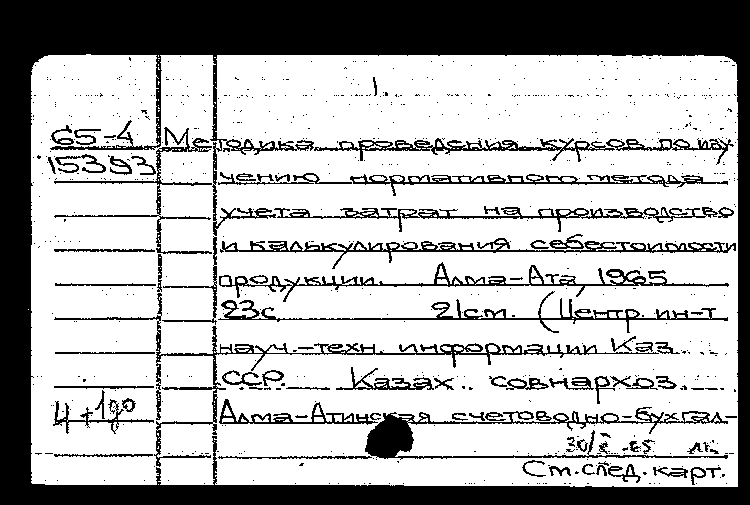 1.
65-4 Методика проведения курсов по изу
15393 чению нормативного метода
учета затрат на производство
и калькулирования себестоимости
продукции. Алма-Ата, 1965
23с. 21см. (Центр. ин-т
науч.-техн. информации Каз.
ССР. Казах. совнархоз.
4+1до Алма-Атинская счетоводно-бухгал-
См.след.карт.